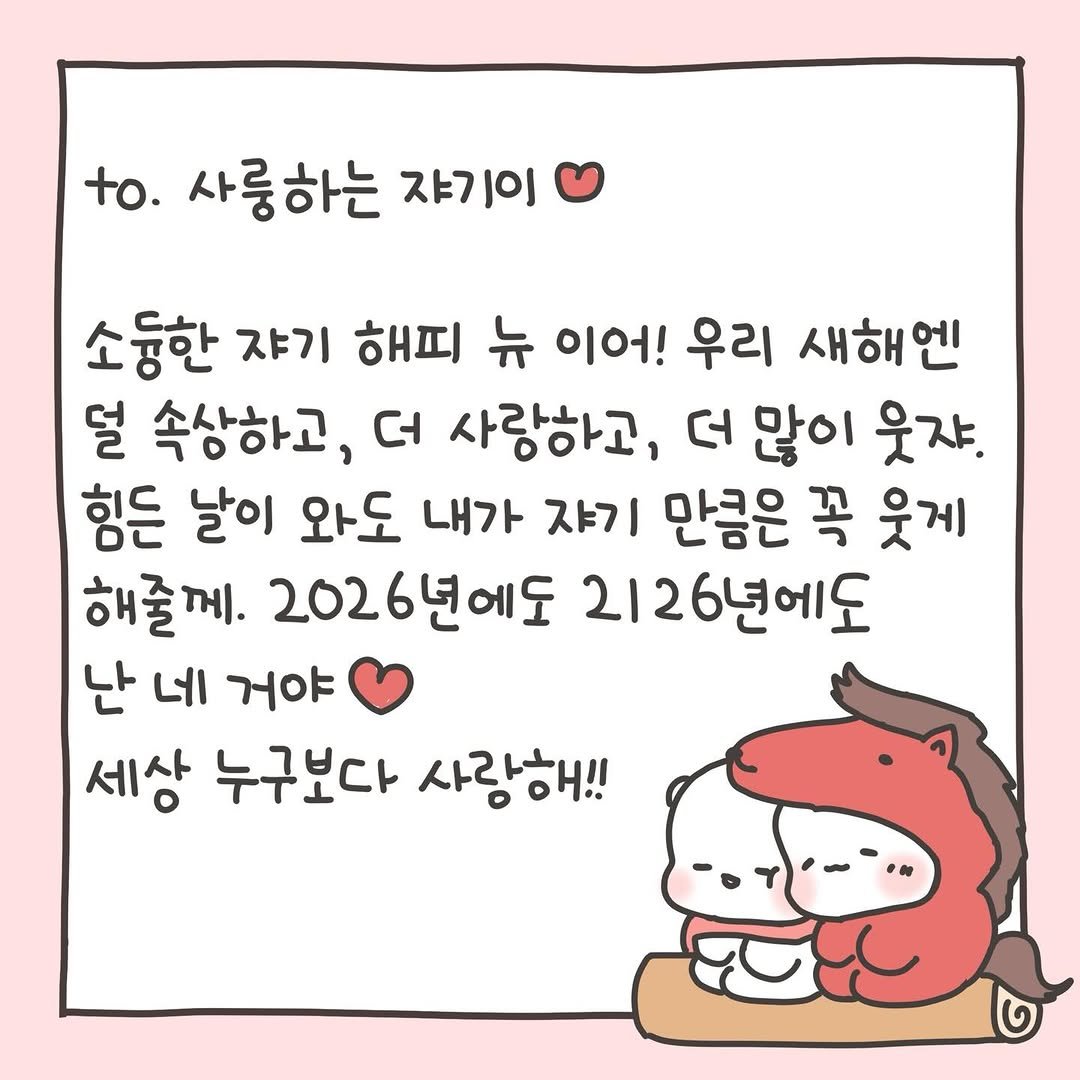 to. 사룽하는 쟈기이 ❤
소듕한 쟈기 해피 뉴 이어! 우리 새해엔
덜 속상하고, 더 사랑하고, 더 많이 웃쟈.
힘든 날이 와도 내가 쟈기 만큼은 꼭 웃게
해줄께. 2026년에도 2126년에도
난 네 거야 ❤
세상 누구보다 사랑해!!